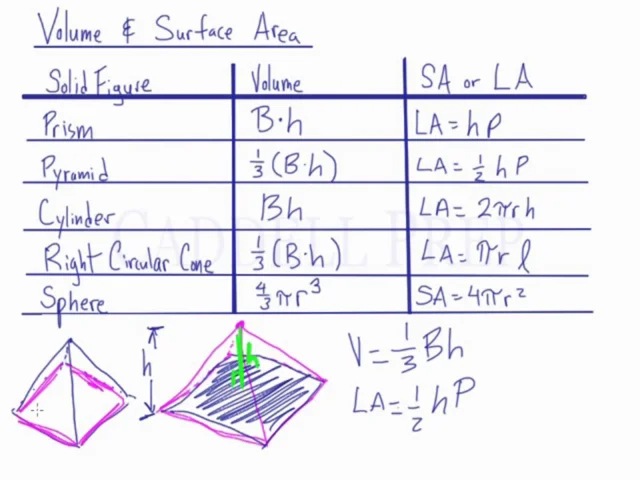 Volume & Surface Area
Solid Figure Volume SA or LA
Prism B·h LA = hp
Pyramid 1/3 (B·h) LA = 1/2 hP
Cylinder Bh LA = 2πrh
Right Circular Cone 1/3 (B·h) LA = πrl
Sphere 4/3 πr³ SA = 4πr²
CADDELL PREP
h h V = 1/3 Bh
LA = 1/2 hP